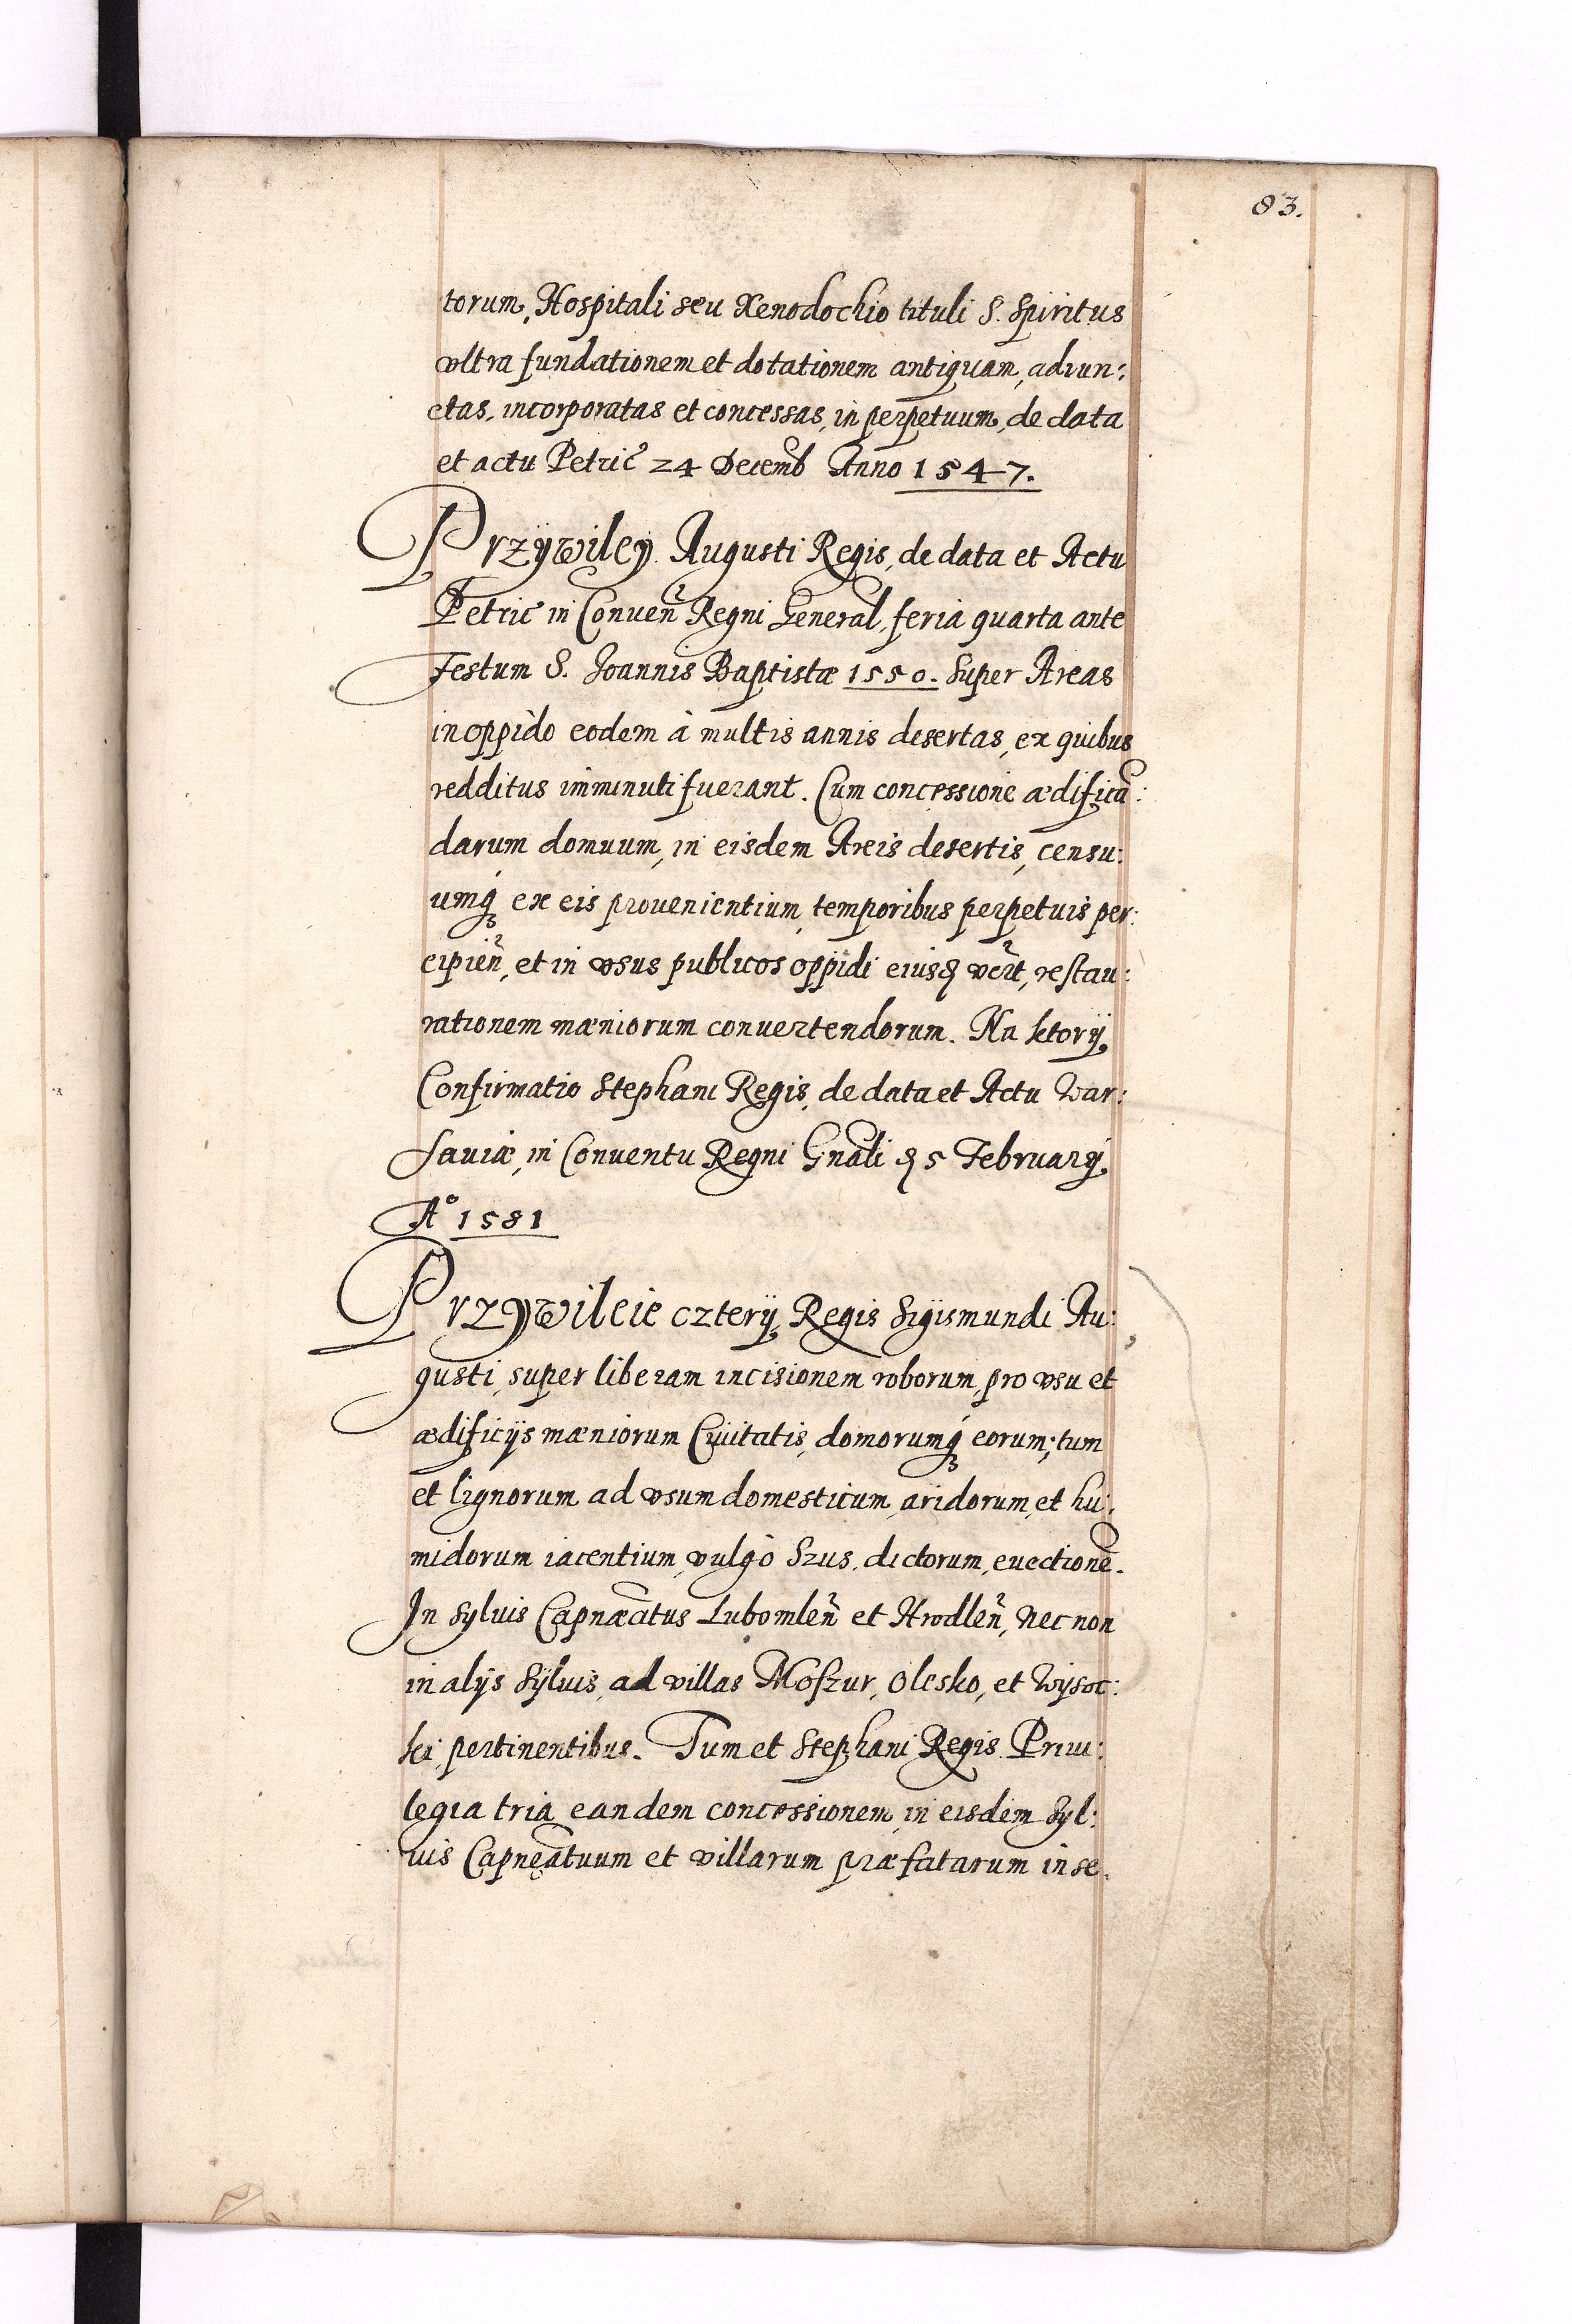 83.
torum, Hospitali seu Xenodochio tituli S. Spiritus
vltra fundationem et dotationem antiquam, adiun:
ctas, incorporatas et concessas, in perpetuum, de data
et actu Petric̃ 24 Decemb Anno 1547.
Przÿwileÿ Augusti Regis, de data et Actu
Petric̃ in Conueñ Regni General, feria quarta ante
Festum S. Joannis Baptistæ 1550. Super Areas
in oppido eodem à multis annis desertas, ex quibus
redditus imminuti fuerant. Cum concessione ædificã:
darum domuum, in eisdem Areis desertis, censu:
umq́ꝫ ex eis prouenientium, temporibus perpetuis per:
cipieñ, et in vsus publicos oppidi eiusđ vẽrt, restau:
rationem mæniorum conuertendorum. Na ktorÿ,
Confirmatio Stephani Regis, de data et Actu War:
sauiæ, in Conuentu Regni Gnãli đ 5 February,
Aº 1581
Przywileie czterÿ, Regis Sigismundi Au:
gusti, super liberam incisionem roborum, pro vsu et
ædificijs mæniorum Ciuitatis, domorumq́ꝫ eorum; tum
et lignorum ad vsum domesticum, aridorum, et hu:
midorum iacentium, vulgò Szus, dictorum, euectionẽ.
In syluis Capnæãtus Lubomleñ et Hrodleñ, Nec non
in alÿs sÿluis, ad villas Moszur, Olesko, et Wÿsoc:
ki, pertinentibus. Tum et Stephani Regis Priui:
legia tria, eandem concessionem, in eisdem Syl:
uis Capneãtuum et villarum præfatarum in se.